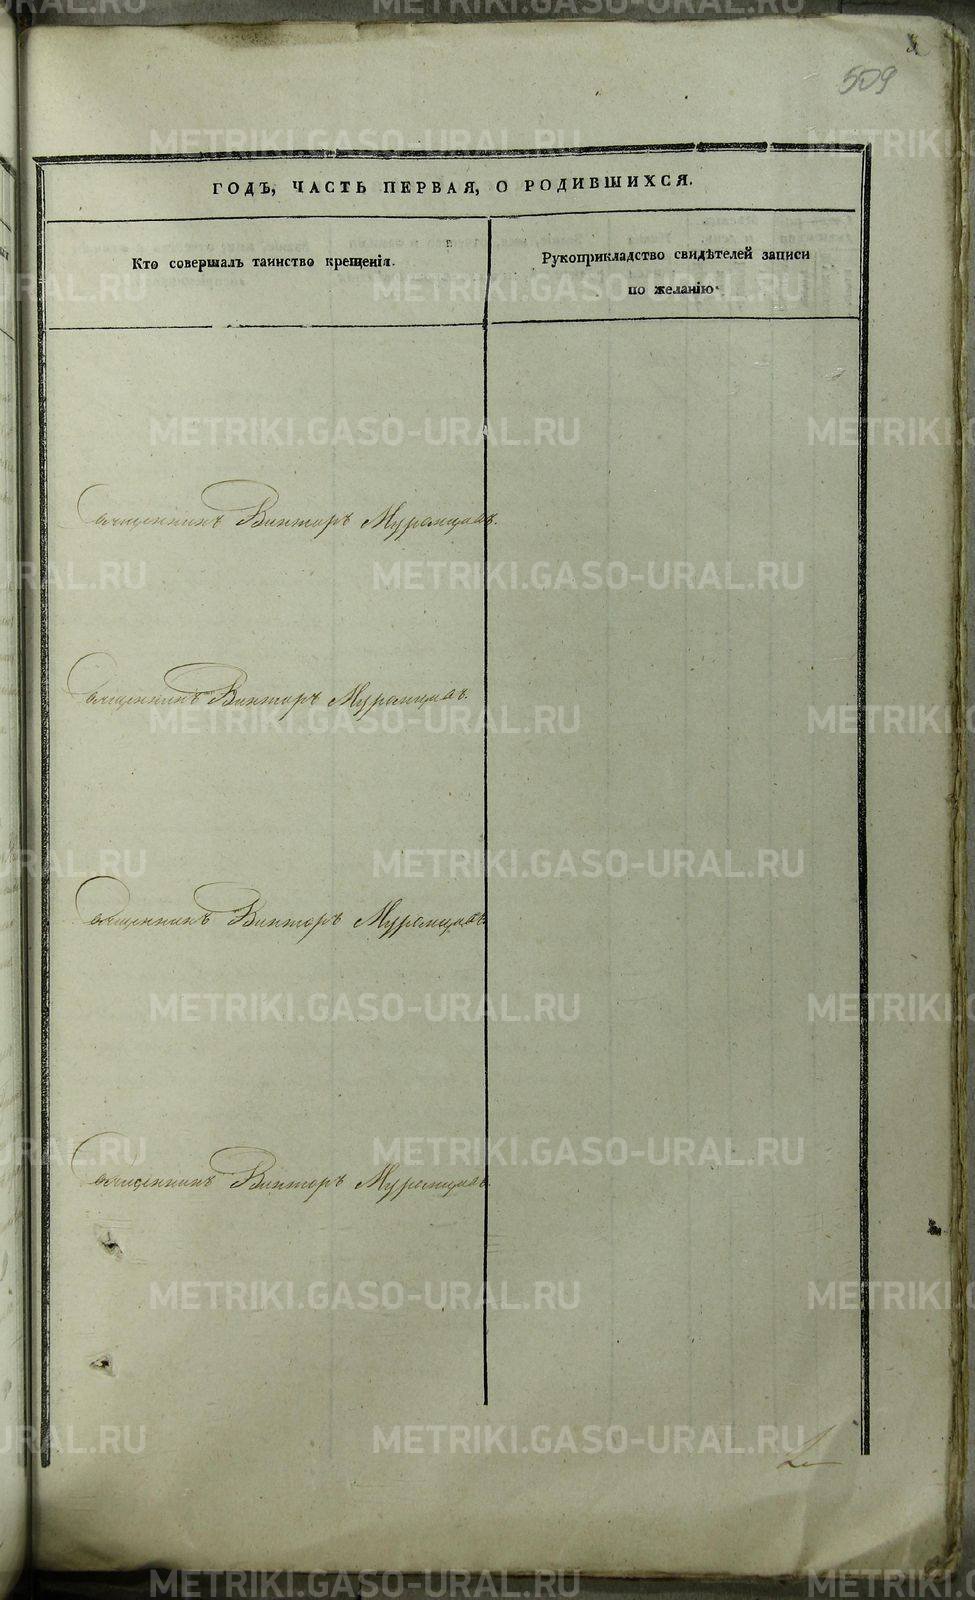 509
ГОДЪ, ЧАСТЬ ПЕРВАЯ, О РОДИВШИХСЯ.
Кто совершалъ таинство крещенія.
Рукоприкладство свидѣтелей записи
по желанію.
Священникъ Викторъ Муромцовъ.
Священникъ Викторъ Муромцовъ.
Священникъ Викторъ Муромцовъ.
Священникъ Викторъ Муромцовъ.
METRIKI.GASO-URAL.RU